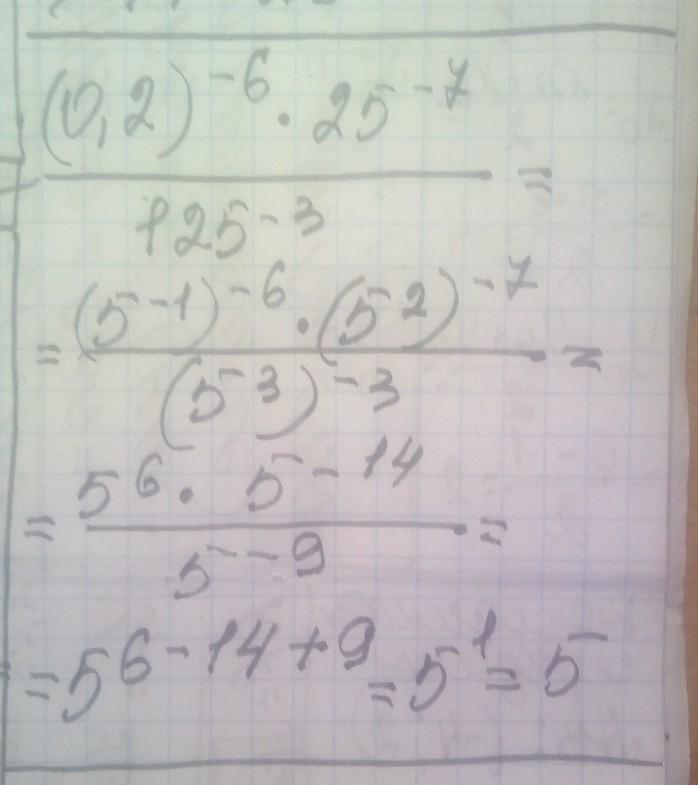 (0,2)^{-6} · 25^{-7}
125^{-3}
=
= (5^{-1})^{-6} · (5^2)^{-7}
(5^3)^{-3}
=
= 5^6 · 5^{-14}
5^{-9}
=
= 5^{6-14+9} = 5^1 = 5